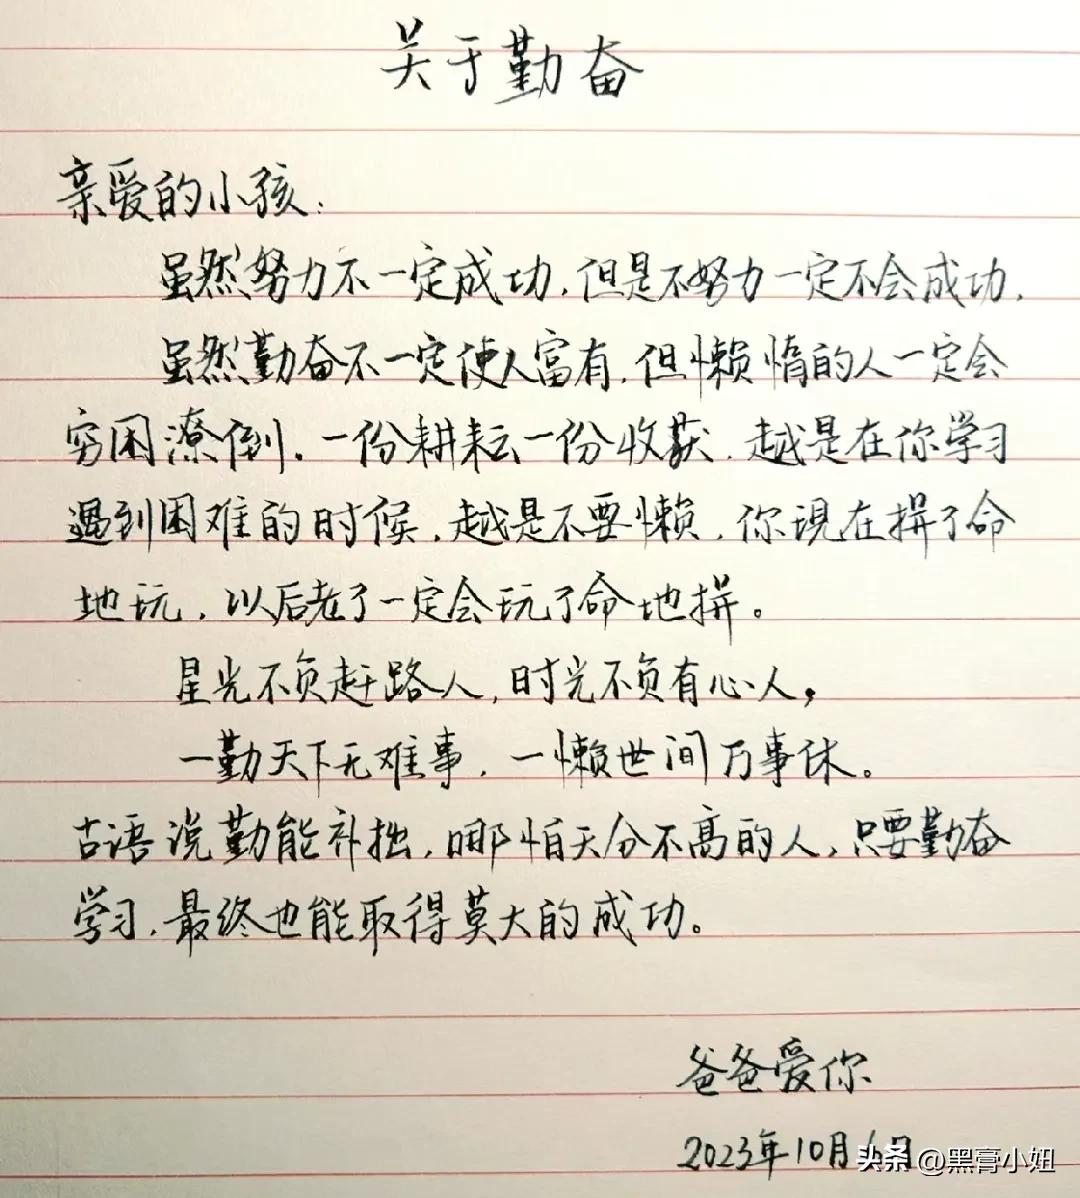 关于勤奋
亲爱的小孩:
虽然努力不一定成功,但是不努力一定不会成功.
虽然勤奋不一定使人富有,但懒惰的人一定会
穷困潦倒。一份耕耘一份收获.越是在你学习
遇到困难的时候,越是不要懒,你现在拼了命
地玩,以后老了一定会玩了命地拼。
星光不负赶路人,时光不负有心人,
一勤天下无难事,一懒世间万事休。
古语说勤能补拙,哪怕天分不高的人,只要勤奋
学习,最终也能取得莫大的成功。
爸爸爱你
2023年10月 日
头条 @黑膏小妞